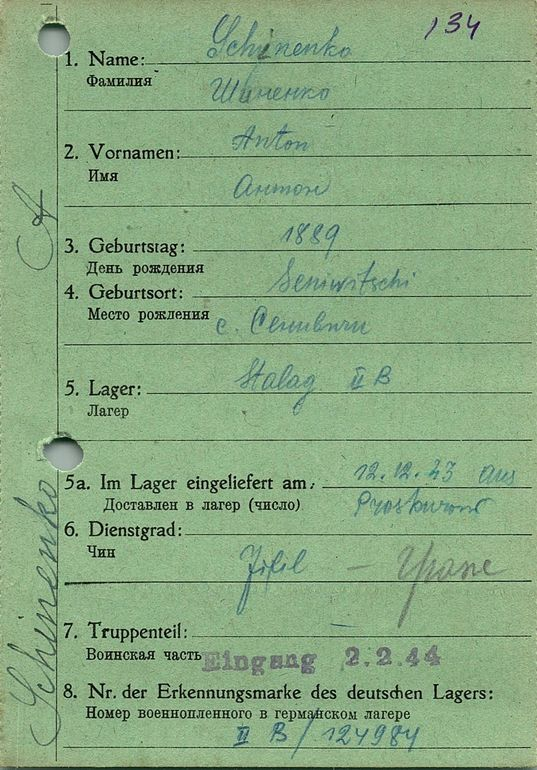 134
1. Name: Schinenko
Фамилия Шиненко
2. Vornamen: Anton
Имя Антон
3. Geburtstag: 1889
День рождения
4. Geburtsort: Seniwitschi
Место рождения с. Сенивичи
5. Lager: Stalag II B
Лагер
5a. Im Lager eingeliefert am: 12.12.43 aus
Доставлен в лагер (число) Proskurow
6. Dienstgrad:
Чин
Zivil –
7. Truppenteil: –
Воинская часть Eingang 2.2.44
8. Nr. der Erkennungsmarke des deutschen Lagers:
Номер военнопленного в германском лагере
II B/124984
Schinenko A